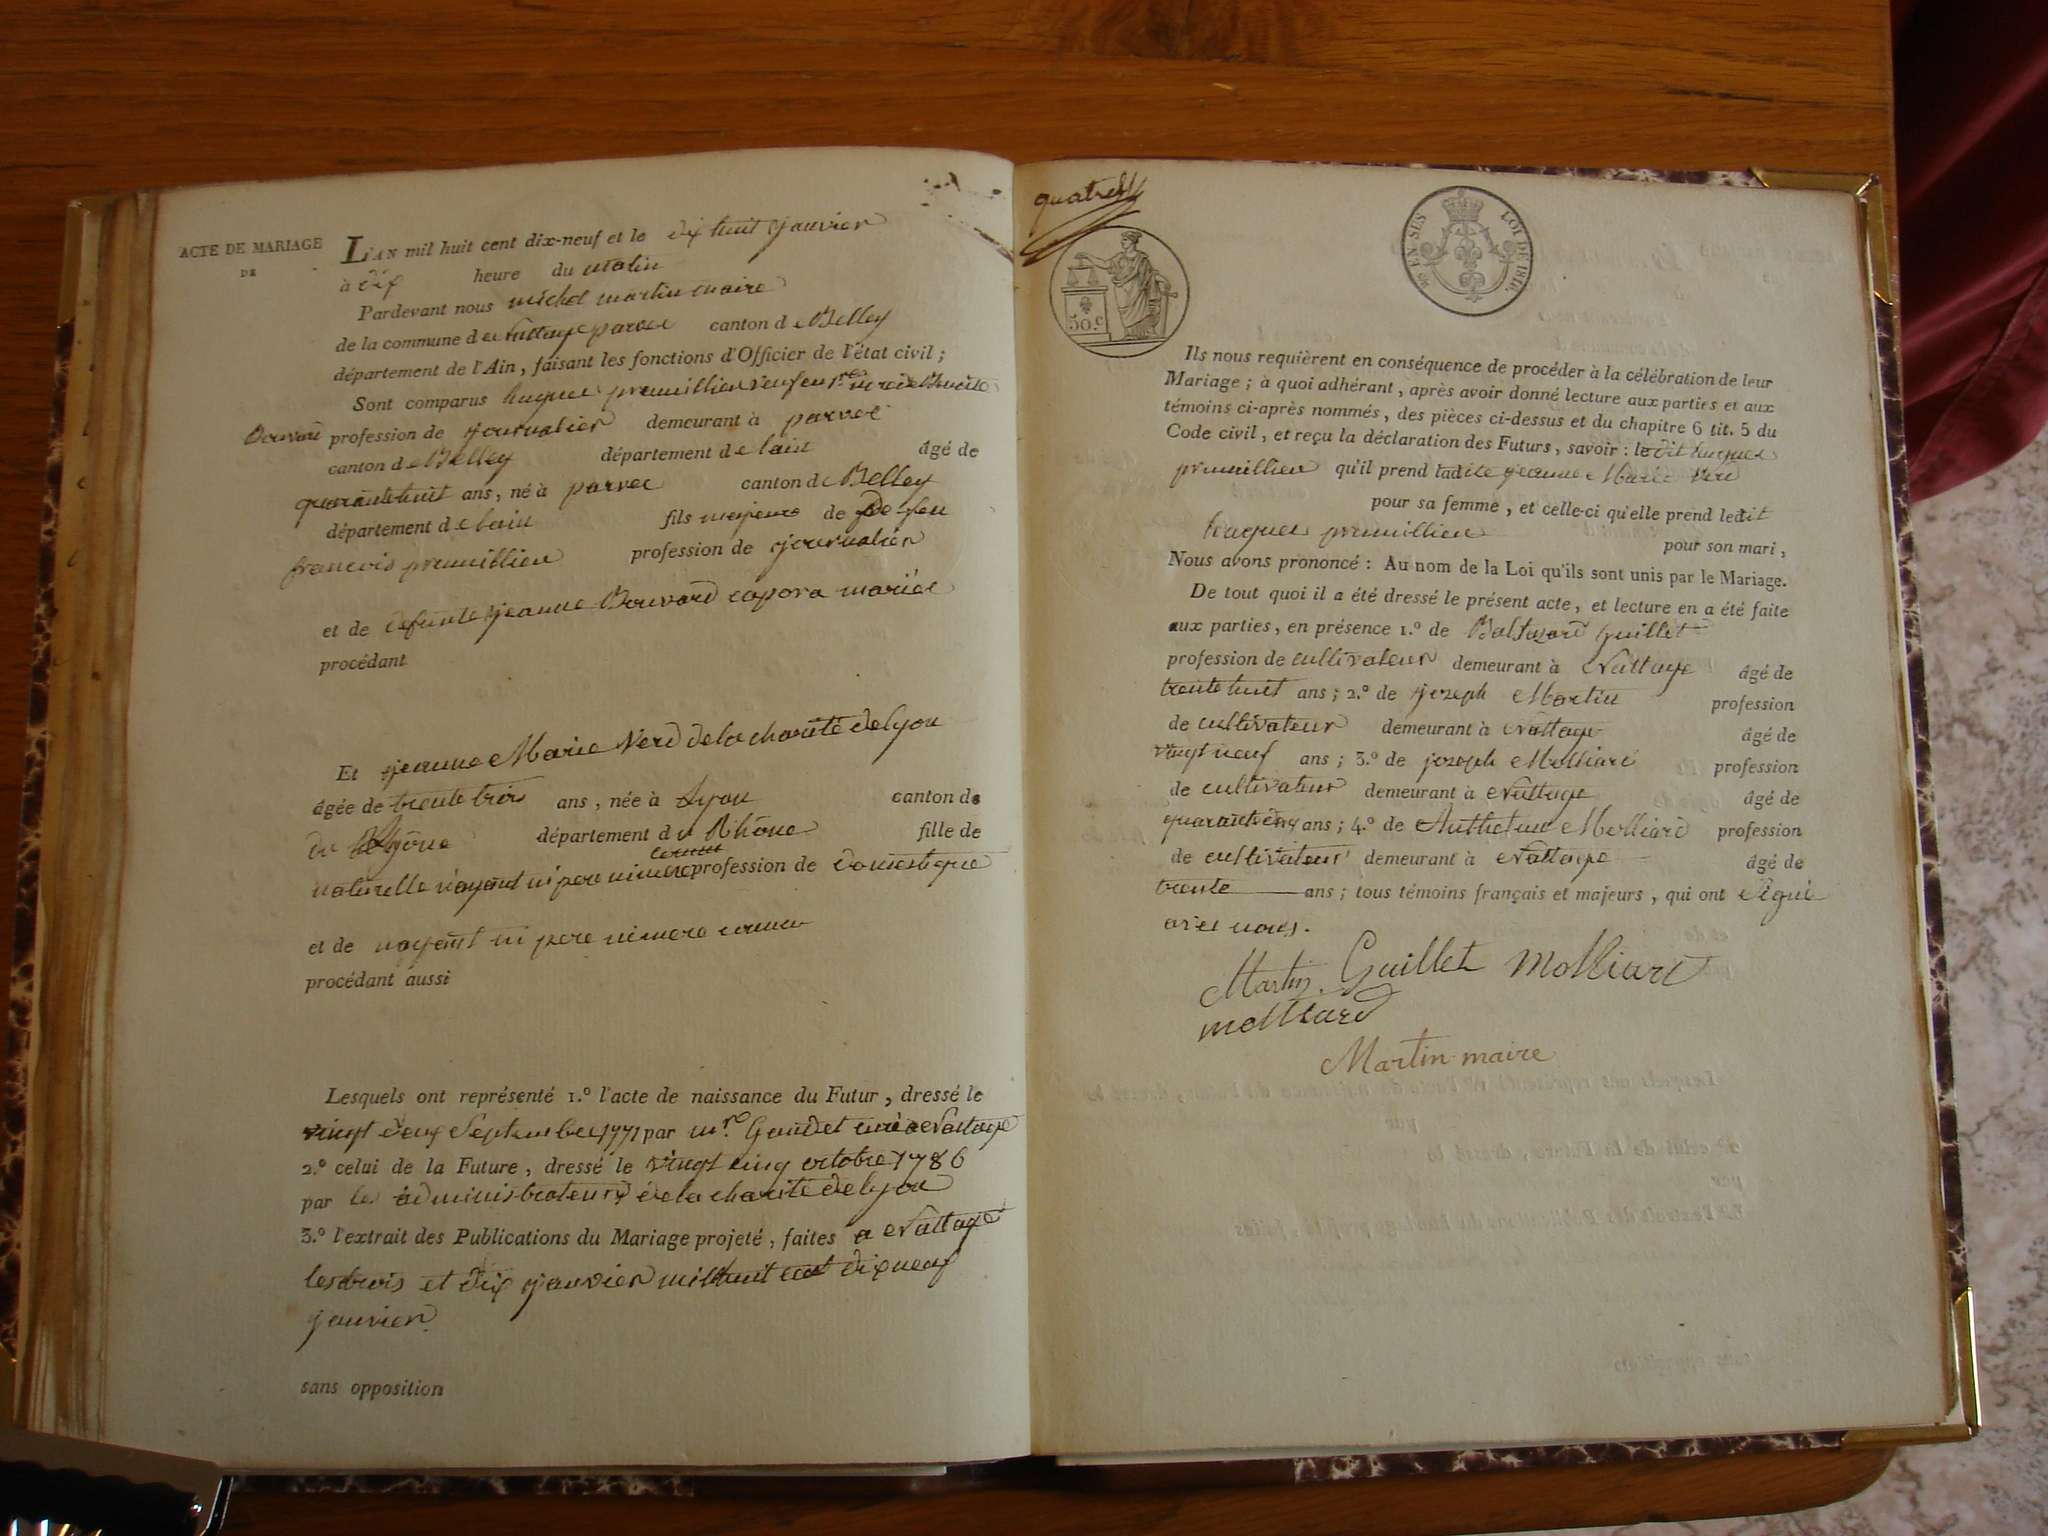 ACTE DE MARIAGE
DE
L'AN mil huit cent dix-neuf et le dix huit janvier
à dix heure du matin
Pardevant nous michel martin maire
de la commune de Nattage parvee canton de Belley
département de l'Ain, faisant les fonctions d'Officier de l'état civil ;
Sont comparus hugues premillieu veuf en
Bouvard profession de journalier demeurant à parvee
canton de Belley département de lain âgé de
quarante huit ans, né à parvee canton de Belley
département de lain fils majeure de De feu
francois premillieu profession de journalier
et de defunte jeanne Bouvard mariée
procédant
Et jeanne Marie Verd de la charité de lyon
âgée de trente trois ans, née à Lyon canton de
du Rhône département du Rhône fille de
connus
naturelle n'ayant ni pere ni mere profession de domestique
et de nayant ni pere ni mere connu
procédant aussi
Lesquels ont représenté 1.º l'acte de naissance du Futur, dressé le
vingt deux Septembre 1771 par mre Gaudet curé de Nattage
2.º celui de la Future, dressé le vingt cinq octobre 1786
par les administrateurs de la charité de lyon
3.º l'extrait des Publications du Mariage projeté, faites a Nattage
les trois et dix janvier mil huit cent dix neuf
janvier.
sans opposition
quatre
50.c
LOI DE 1816
Ils nous requièrent en conséquence de procéder à la célébration de leur
Mariage ; à quoi adhérant, après avoir donné lecture aux parties et aux
témoins ci-après nommés, des pièces ci-dessus et du chapitre 6 tit. 5 du
Code civil, et reçu la déclaration des Futurs, savoir : ledit hugues
premillieu qu'il prend ladite jeanne Marie Verd
pour sa femme, et celle-ci qu'elle prend ledit
hugues premillieu pour son mari,
Nous avons prononcé : Au nom de la Loi qu'ils sont unis par le Mariage.
De tout quoi il a été dressé le présent acte, et lecture en a été faite
aux parties, en présence 1.º de Baltazard Guillet
profession de cultivateur demeurant à Nattage âgé de
trente huit ans ; 2.º de jozeph Martin profession
de cultivateur demeurant à Nattage âgé de
vingt neuf ans ; 3.º de jozeph Molliard profession
de cultivateur demeurant à Nattage âgé de
quarante cinq ans ; 4.º de Anthelme Molliard profession
de cultivateur demeurant à Nattage âgé de
trente ans ; tous témoins français et majeurs, qui ont Signé
avec nous.
Martin Guillet Molliard
molliard
Martin maire